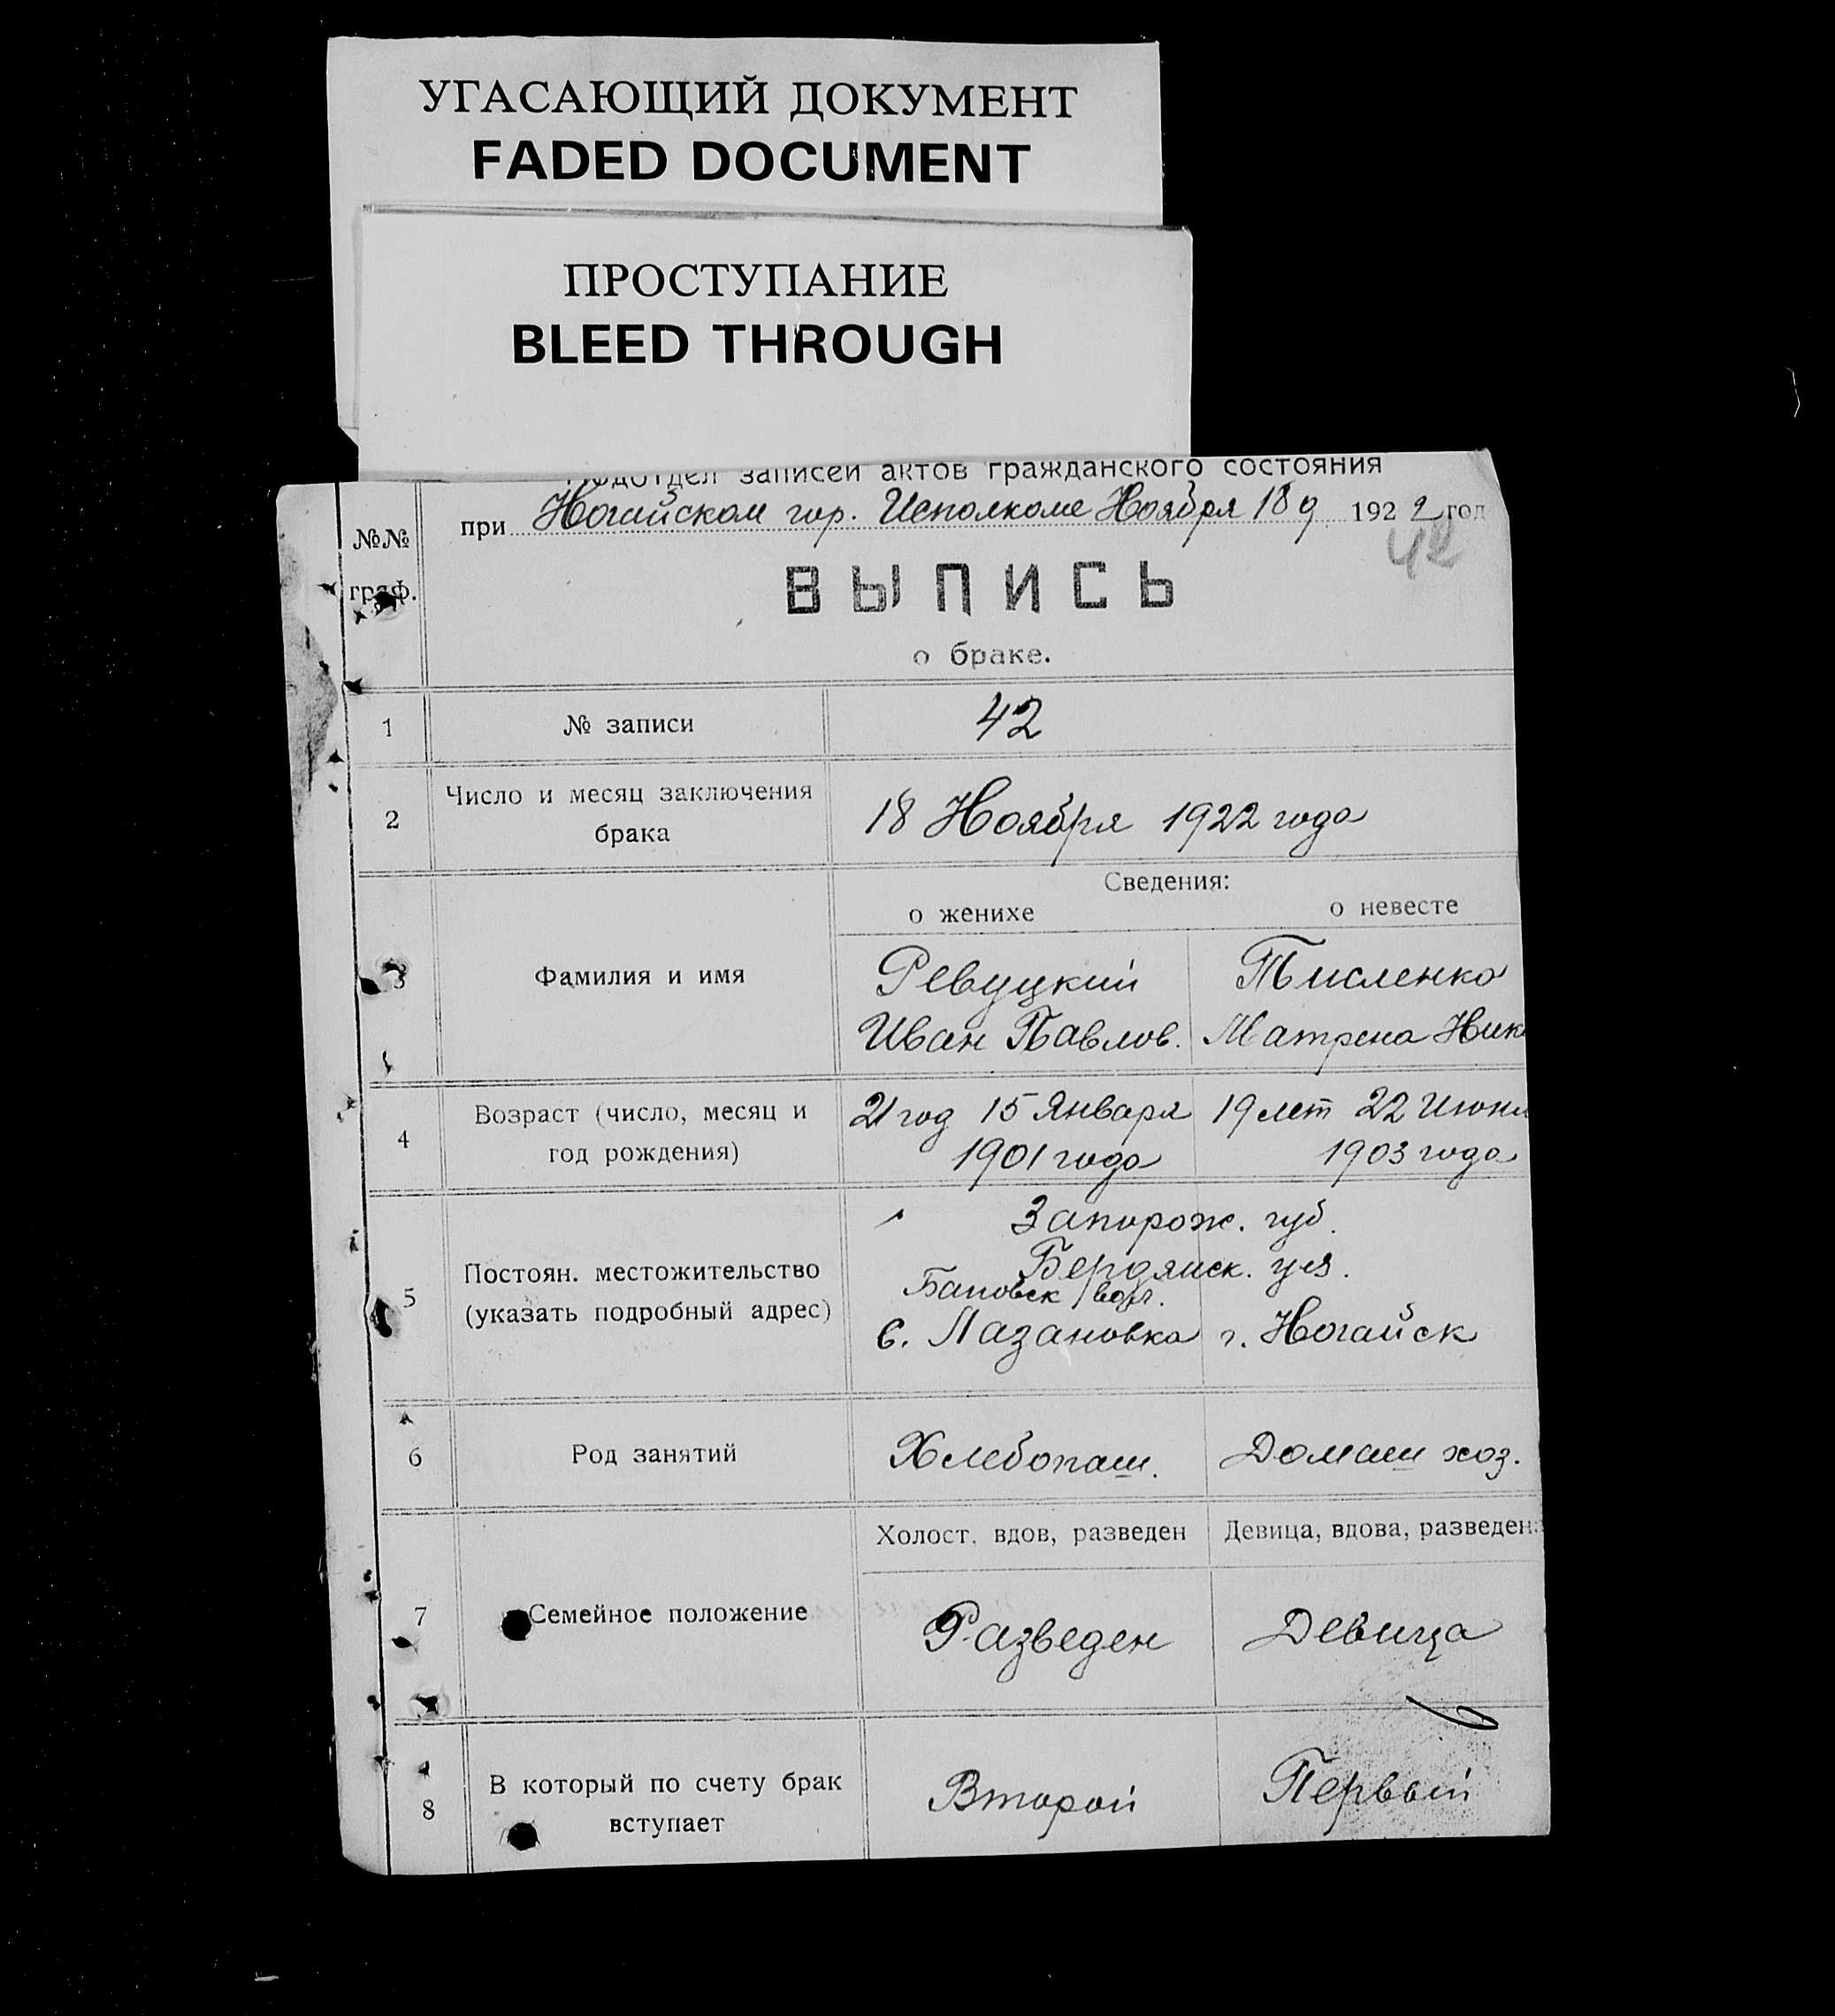 УГАСАЮЩИЙ ДОКУМЕНТ
FADED DOCUMENT
ПРОСТУПАНИЕ
BLEED THROUGH
Подотдел записей актов гражданского состояния
при Ногайском гор. Исполкоме Ноября 18 д 1922 год
42
№№ граф.
ВЫПИСЬ
о браке.
1 № записи 42
2 Число и месяц заключения брака 18 Ноября 1922 года
Сведения:
о женихе о невесте
3 Фамилия и имя
Ревуцкий Тисленко
Иван Павлов. Матрена Ник
4 Возраст (число, месяц и год рождения)
21 год 15 Января 19 лет 22 Июня
1901 года 1903 года
5 Постоян. местожительство (указать подробный адрес)
Запорож. губ.
Бердянск. уез.
вол.
с. Лазановка г. Ногайск
6 Род занятий Хлебопаш. Домаш хоз.
Холост, вдов, разведен Девица, вдова, разведена
7 Семейное положение Разведен Девица
8 В который по счету брак вступает Второй Первый